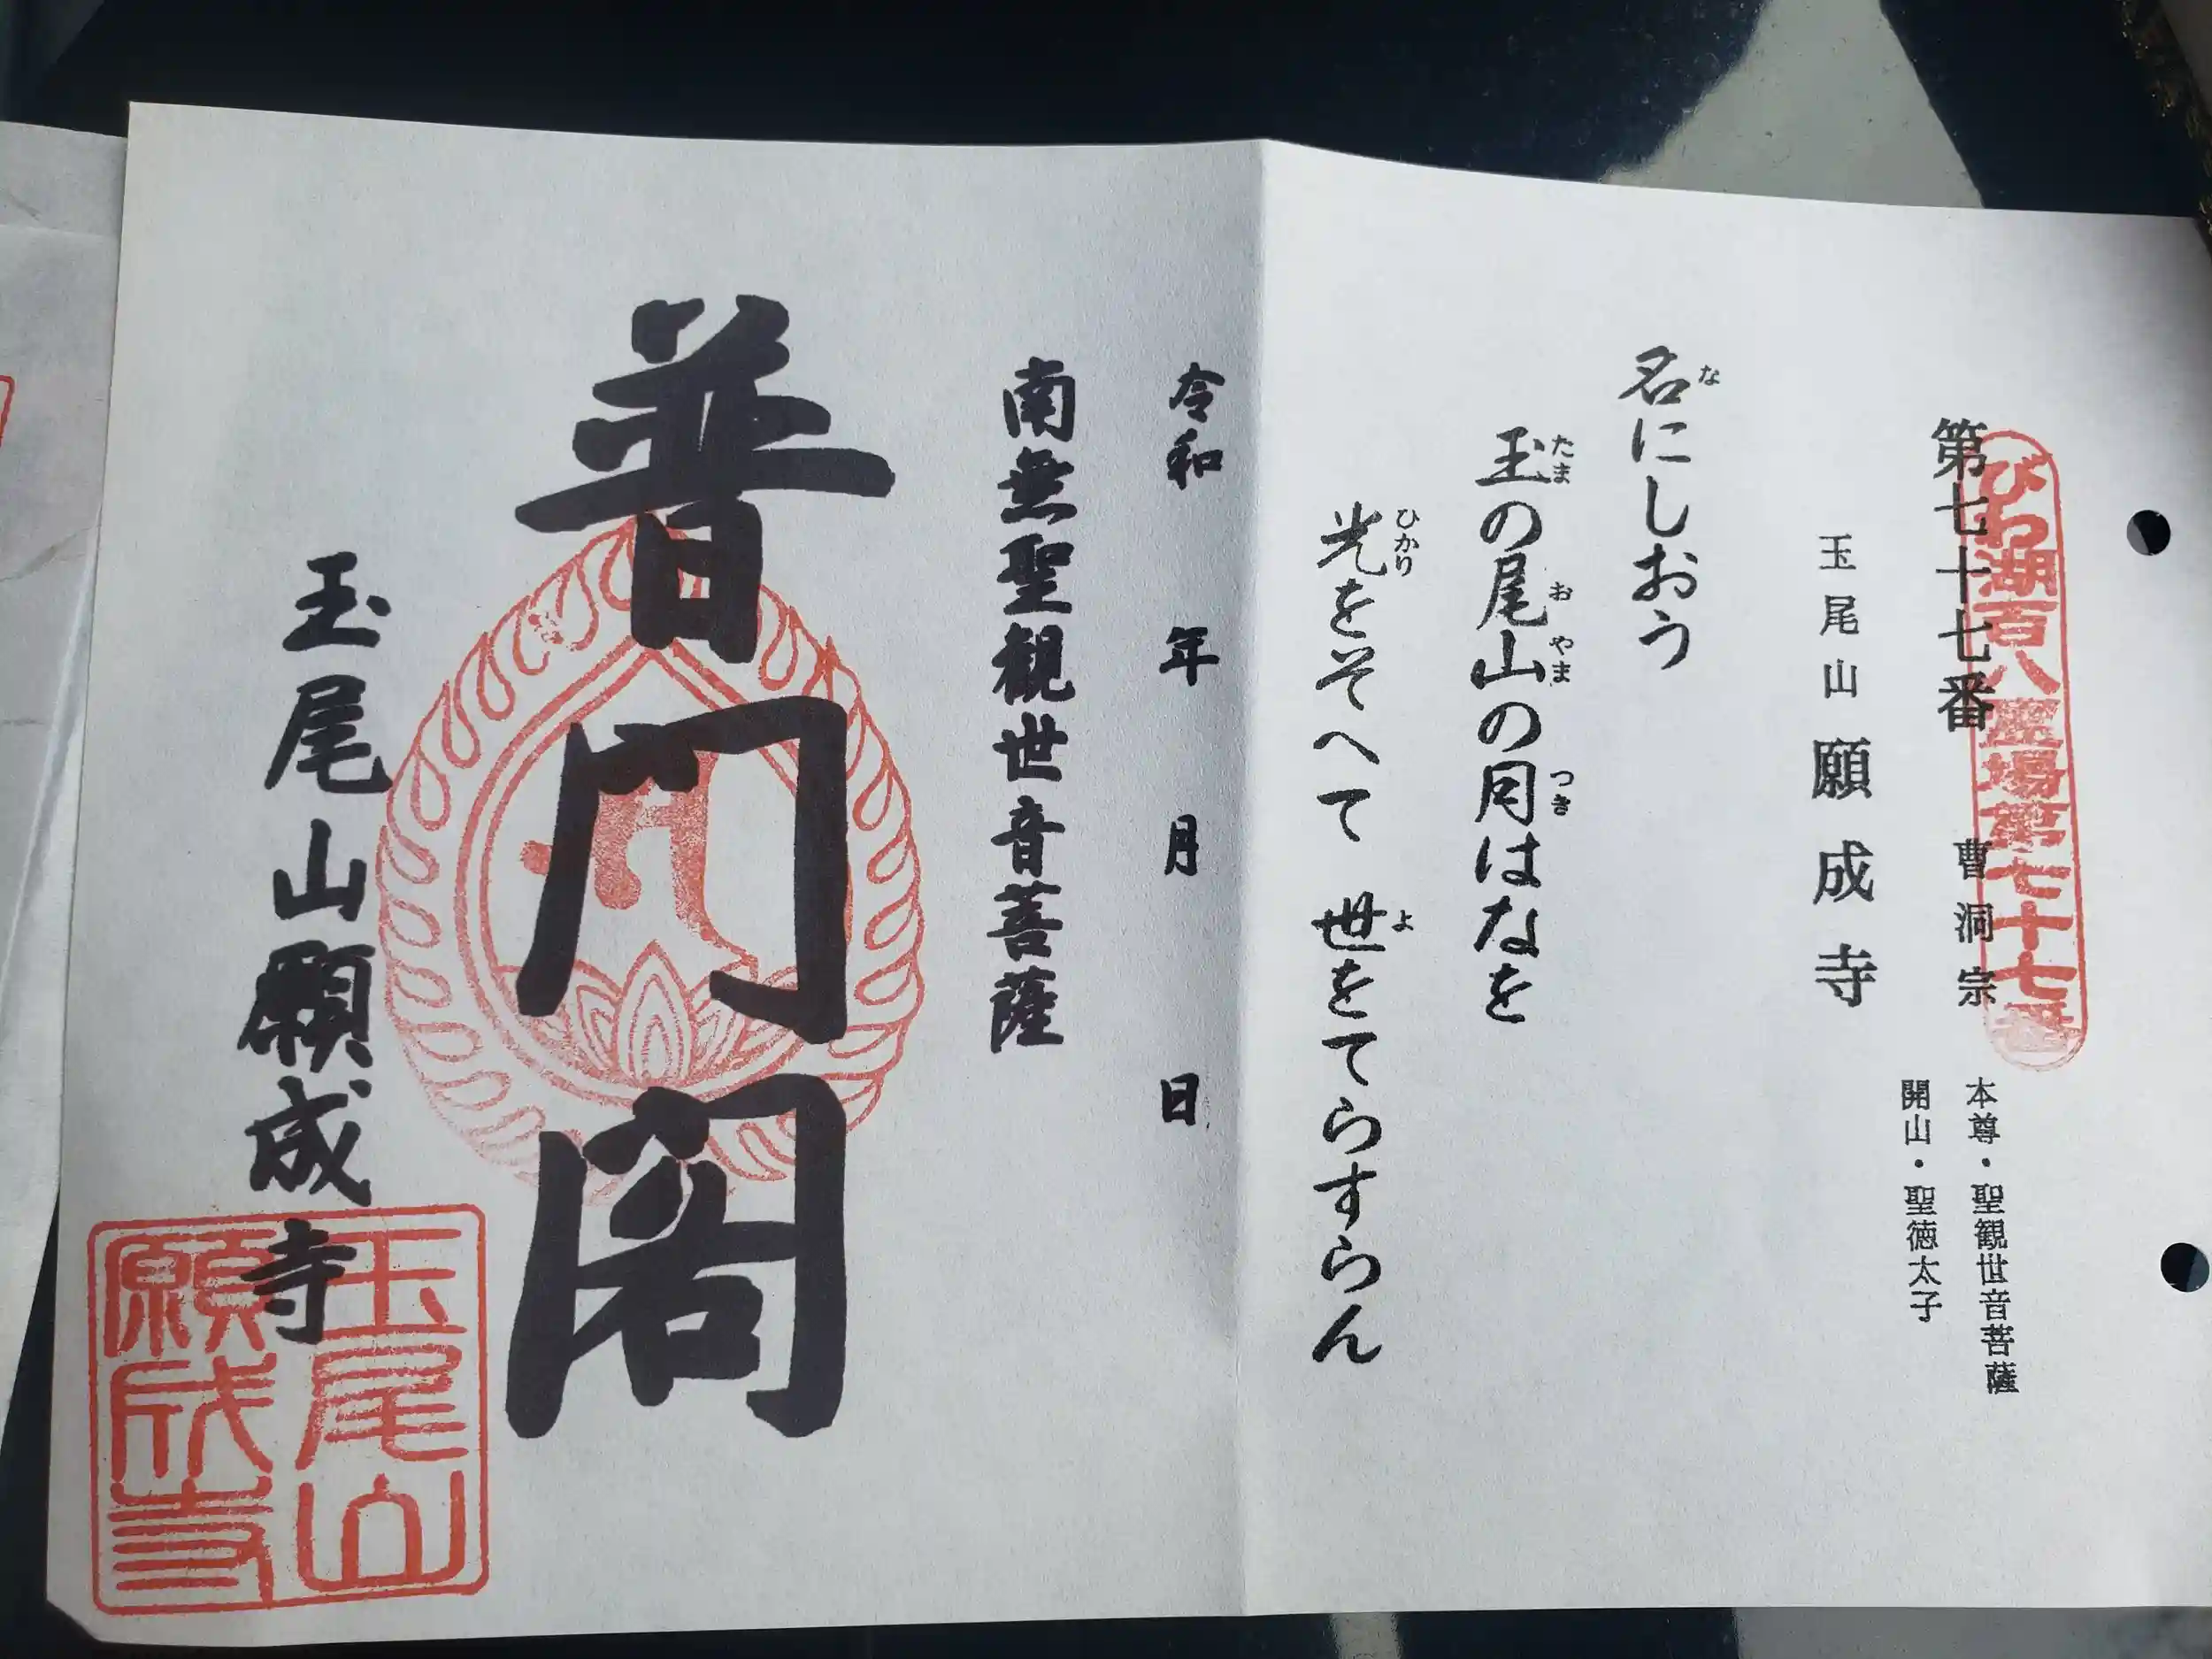 びわ湖百八霊場第七十七番
第七十七番 曹洞宗
本尊・聖観世音菩薩
開山・聖徳太子
玉尾山 願成寺
名にしおう
な
玉の尾山の月はなを
たま お やま つき
光をそへて 世をてらすらん
ひかり よ
令和 年 月 日
南無聖観世音菩薩
普門閣
玉尾山願成寺
玉尾山
願成寺